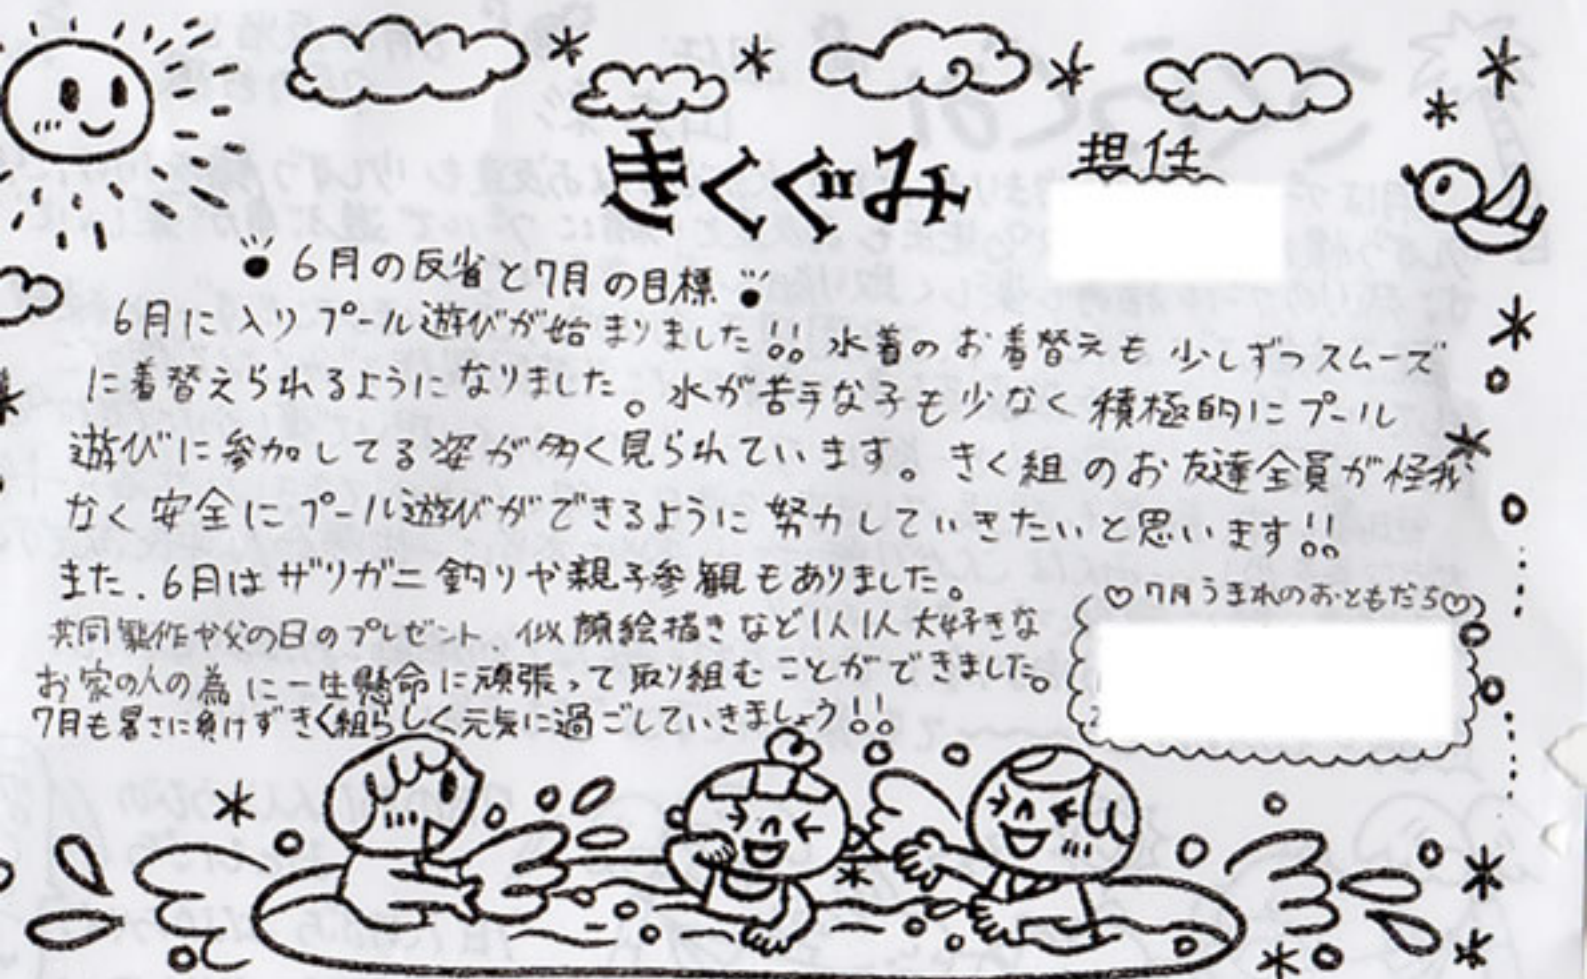 きくぐみ
担任
6月の反省と7月の目標
6月に入りプール遊びが始まりました!! 水着のお着替えも少しずつスムーズ
に着替えられるようになりました。水が苦手な子も少なく積極的にプール
遊びに参加してる姿が多く見られています。きく組のお友達全員が怪我
なく安全にプール遊びができるように努力していきたいと思います!!
また、6月はザリガニ釣りや親子参観もありました。
共同製作や父の日のプレゼント、似顔絵描きなど1人1人大好きな
お家の人の為に一生懸命に頑張って取り組むことができました。
7月も暑さに負けずきく組らしく元気に過ごしていきましょう!!
♡7月うまれのおともだち♡